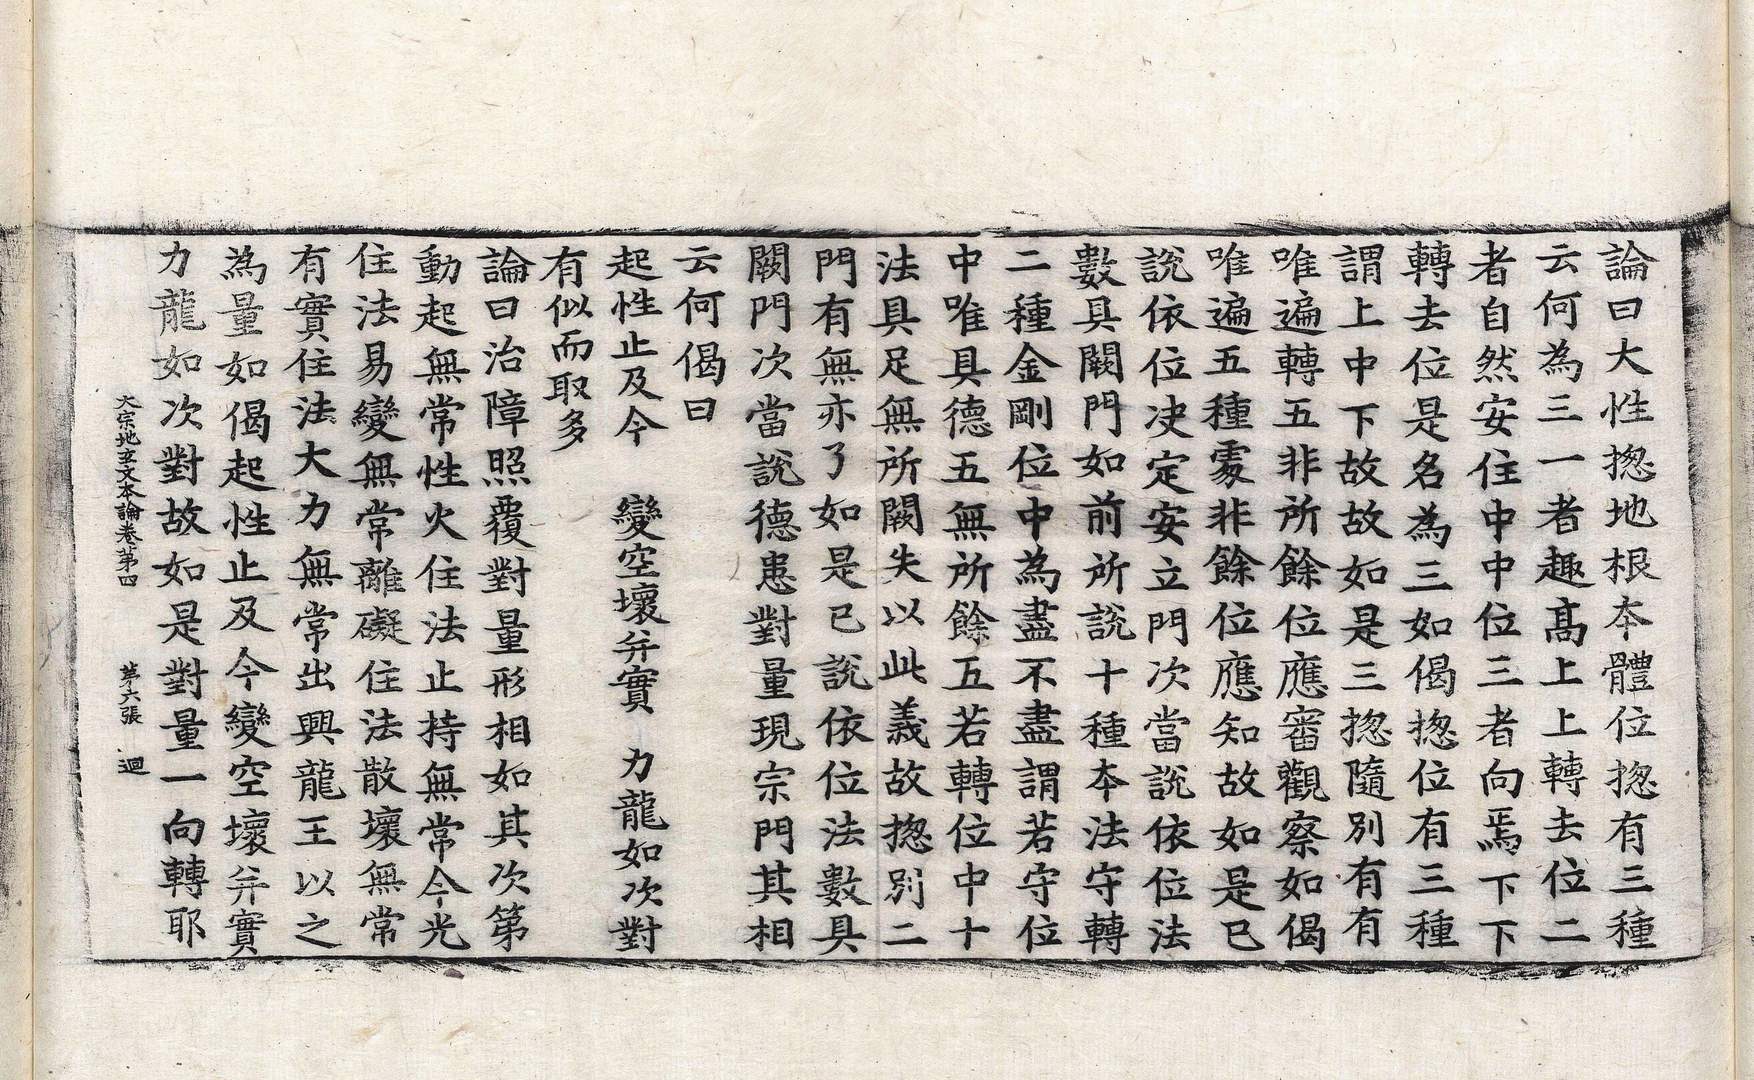 論曰大性揔地根本體位揔有三種
云何為三一者趣髙上上轉去位二
者自然安住中中位三者向焉下下
轉去位是名為三如偈揔位有三種
謂上中下故故如是三揔隨別有有
唯遍轉五非所餘位應審觀察如偈
唯遍五種䖏非餘位應知故如是已
說依位决定安立門次當說依位法
數具闕門如前所說十種本法守轉
二種金剛位中為盡不盡謂若守位
中唯具德五無所餘五若轉位中十
法具足無所闕失以此義故揔別二
門有無亦了如是已說依位法數具
闕門次當說德患對量現宗門其相
云何偈曰
起性止及今　變空壞并實　力龍如次對
有似而取多
論曰治障照覆對量形相如其次第
動起無常性火住法止持無常今光
住法易變無常離礙住法散壞無常
有實住法大力無常出興龍王以之
為量如偈起性止及今變空壞并實
力龍如次對故如是對量一向轉耶
大宗地玄文本論卷第四　第六張　迴